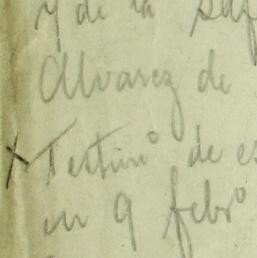 y de la
Alvarez de
x Testimº de es
en 9 febrº